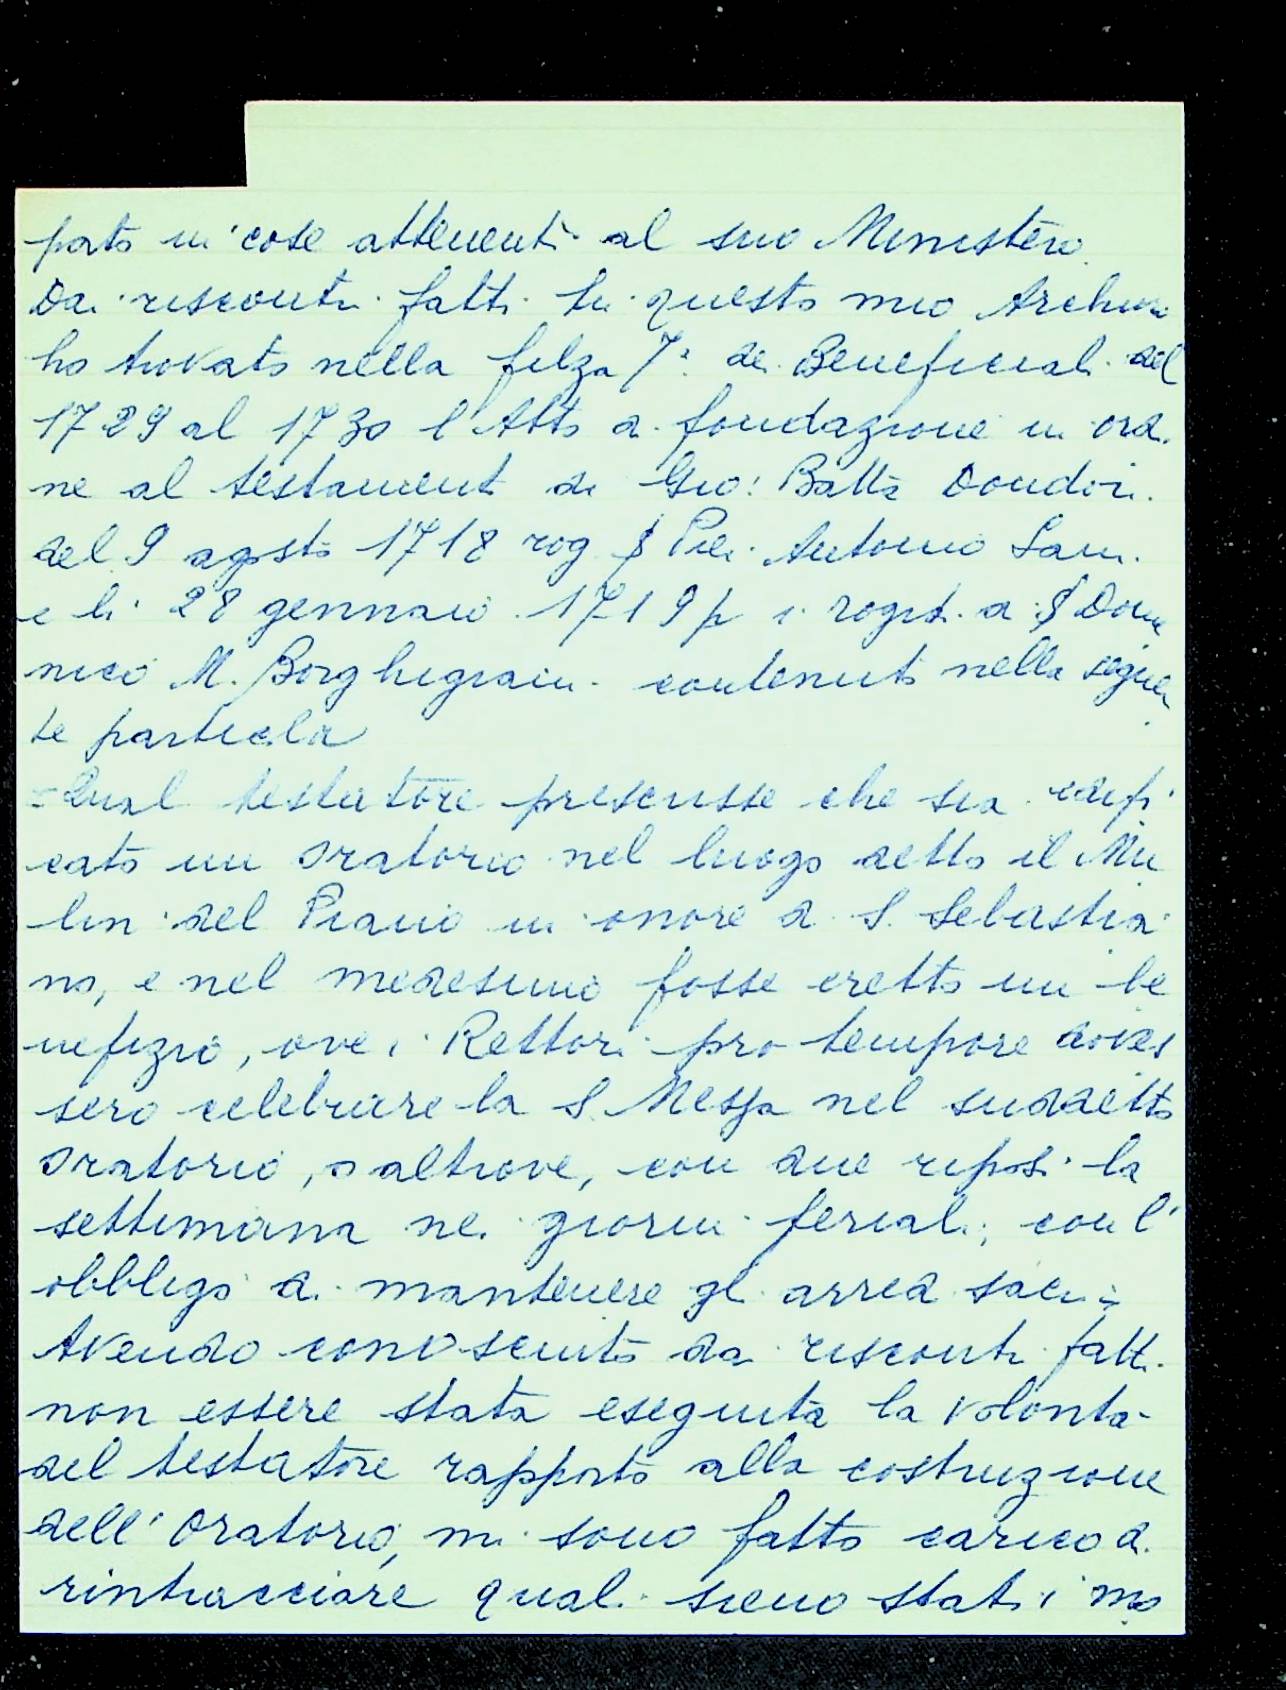 porto in cose attenenti al suo Ministero.
Dai riscontri fatti in questo mio Archivio
ho trovato nella filza 7ª dei Beneficiali del
1729 al 1730 l'Atto di fondazione in ordi
ne al testamento di Gio: Batta Dondori
del 9 agosto 1718 rog Pier Antonio
e li 28 gennaio 1719 rogiti di Dome
nico M. Borghigiani contenuto nella seguen
te particola
= Qual testatore prescrisse che sia edifi
cato un oratorio nel luogo detto il Mu
lin del Piano in onore di S. Sebastia
no, e nel medesimo fosse eretto un be
nefizio, ove i Rettori pro tempore doves
sero celebrare la S. Messa nel suddetto
oratorio, o altrove, con due riposi la
settimana nei giorni feriali, con l'
obbligo di mantenere gli arredi sacri =
Avendo conosciuto dai riscontri fatti
non essere stata eseguita la volontà
del testatore rapporto alla costruzione
dell'Oratorio, mi sono fatto carico di
rintracciare quali sieno stati i mo